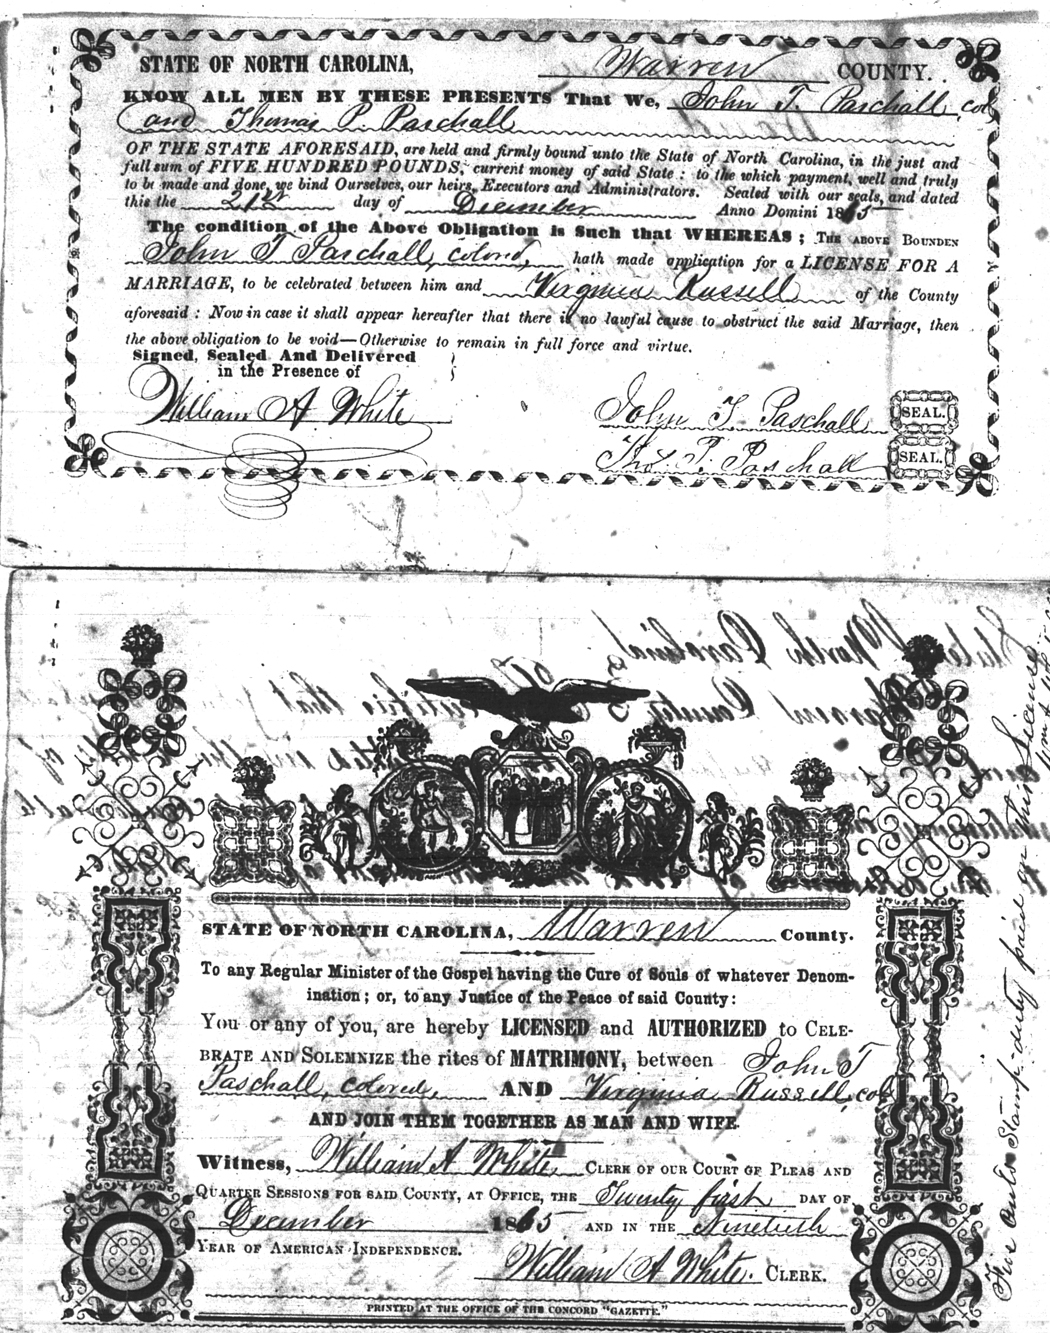 STATE OF NORTH CAROLINA, Warren COUNTY.
KNOW ALL MEN BY THESE PRESENTS That We, John T. Paschall, col
and Thomas P. Paschall
OF THE STATE AFORESAID, are held and firmly bound unto the State of North Carolina, in the just and
full sum of FIVE HUNDRED POUNDS, current money of said State: to the which payment, well and truly
to be made and done, we bind Ourselves, our heirs, Executors and Administrators. Sealed with our seals, and dated
this the 21st day of December Anno Domini 1865
The condition of the Above Obligation is Such that WHEREAS; THE ABOVE BOUNDEN
John T Paschall, colored, hath made application for a LICENSE FOR A
MARRIAGE, to be celebrated between him and Virginia Russell of the County
aforesaid: Now in case it shall appear hereafter that there is no lawful cause to obstruct the said Marriage, then
the above obligation to be void—Otherwise to remain in full force and virtue.
Signed, Sealed And Delivered
in the Presence of
William A White
John T. Paschall SEAL.
Thos T. Paschall SEAL.
State of North Carolina,
Warren County
certifie that
STATE OF NORTH CAROLINA, Warren County.
To any Regular Minister of the Gospel having the Cure of Souls of whatever Denom-
ination; or, to any Justice of the Peace of said County:
You or any of you, are hereby LICENSED and AUTHORIZED to CELE-
BRATE AND SOLEMNIZE the rites of MATRIMONY, between John T
Paschall, colored, AND Virginia Russell, col
AND JOIN THEM TOGETHER AS MAN AND WIFE.
Witness, William A White CLERK OF OUR COURT OF PLEAS AND
QUARTER SESSIONS FOR SAID COUNTY, AT OFFICE, THE Twenty first DAY OF
December 1865 AND IN THE Ninetieth
YEAR OF AMERICAN INDEPENDENCE.
William A White. CLERK.
PRINTED AT THE OFFICE OF THE CONCORD "GAZETTE."
Five cents Stamp duty paid on this License